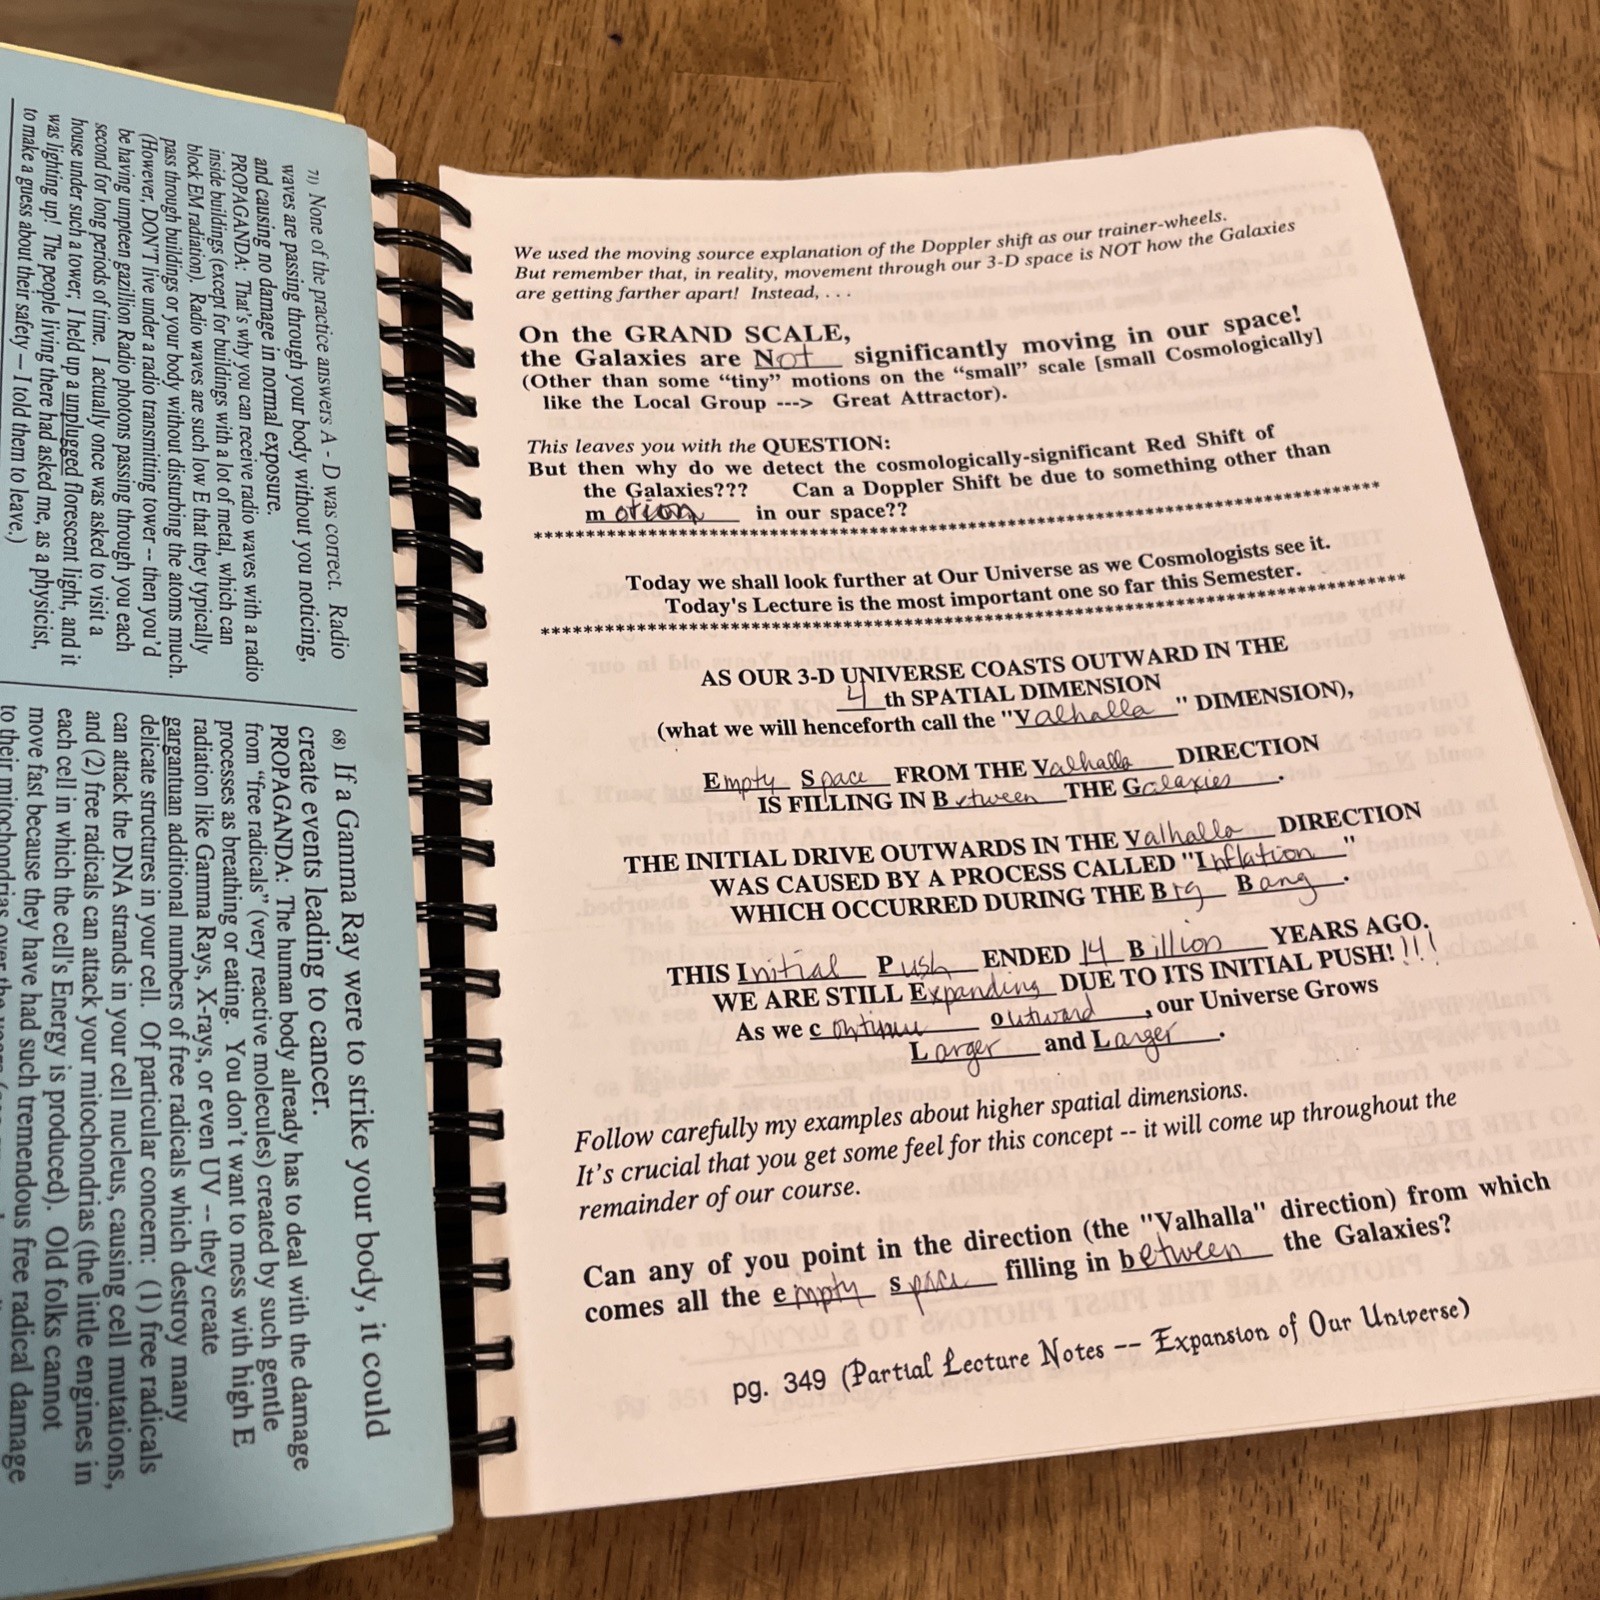 71) None of the practice answers A - D was correct. Radio
waves are passing through your body without you noticing,
and causing no damage in normal exposure.
PROPAGANDA: That's why you can receive radio waves with a radio
inside buildings (except for buildings with a lot of metal, which can
block EM radiation). Radio waves are such low E that they typically
pass through buildings or your body without disturbing the atoms much.
(However, DON'T live under a radio transmitting tower -- then you'd
be having umpteen gazillion Radio photons passing through you each
second for long periods of time. I actually once was asked to visit a
house under such a tower; I held up a unplugged florescent light, and it
was lighting up! The people living there had asked me, as a physicist,
to make a guess about their safety — I told them to leave.)
68) If a Gamma Ray were to strike your body, it could
create events leading to cancer.
PROPAGANDA: The human body already has to deal with the damage
from "free radicals" (very reactive molecules) created by such gentle
processes as breathing or eating. You don't want to mess with high E
radiation like Gamma Rays, X-rays, or even UV -- they create
gargantuan additional numbers of free radicals which destroy many
delicate structures in your cell. Of particular concern: (1) free radicals
can attack the DNA strands in your cell nucleus, causing cell mutations,
and (2) free radicals can attack your mitochondrias (the little engines in
each cell in which the cell's Energy is produced). Old folks cannot
move fast because they have had such tremendous free radical damage
to their mitochondrias over the years
We used the moving source explanation of the Doppler shift as our trainer-wheels.
But remember that, in reality, movement through our 3-D space is NOT how the Galaxies
are getting farther apart! Instead, . . .
On the GRAND SCALE,
the Galaxies are Not significantly moving in our space!
(Other than some "tiny" motions on the "small" scale [small Cosmologically]
like the Local Group ---> Great Attractor).
This leaves you with the QUESTION:
But then why do we detect the cosmologically-significant Red Shift of
the Galaxies??? Can a Doppler Shift be due to something other than
motion in our space??
Today we shall look further at Our Universe as we Cosmologists see it.
Today's Lecture is the most important one so far this Semester.
AS OUR 3-D UNIVERSE COASTS OUTWARD IN THE
4th SPATIAL DIMENSION
(what we will henceforth call the "Valhalla" DIMENSION),
Empty Space FROM THE Valhalla DIRECTION
IS FILLING IN Between THE Galaxies.
THE INITIAL DRIVE OUTWARDS IN THE Valhalla DIRECTION
WAS CAUSED BY A PROCESS CALLED "Inflation"
WHICH OCCURRED DURING THE Big Bang.
THIS Initial Push ENDED 14 Billion YEARS AGO.
WE ARE STILL Expanding DUE TO ITS INITIAL PUSH!!!!
As we continue outward, our Universe Grows
Larger and Larger.
Follow carefully my examples about higher spatial dimensions.
It's crucial that you get some feel for this concept -- it will come up throughout the
remainder of our course.
Can any of you point in the direction (the "Valhalla" direction) from which
comes all the empty space filling in between the Galaxies?
pg. 349 (Partial Lecture Notes -- Expansion of Our Universe)